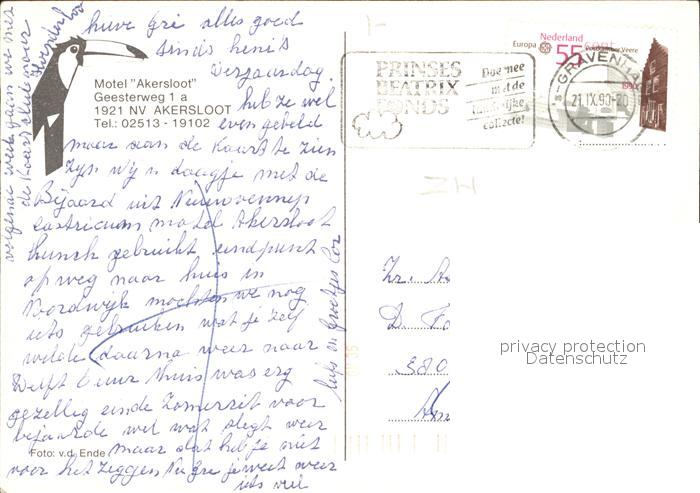 hiere gri alles goed
sinds heni's
verjaardag.
heb ze wel
even gebeld
maar aan de kaart te zien
zijn wij n daagje met de
Bejaard uit Nieuwvennep
castricum motel Akersloot
Lunch gebruikt eindpunt
op weg naar huis in
Noordwijk mochten we nog
iets gebruiken wat je zelf
wilde daarna weer naar
Delft 6 uur thuis was erg
gezellig einde Zomerrit voor
bejaarde wel wat slegt weer
maar dat heb je niet
voor het zeggen je weet weer
iets veel
liefs en groetjes Cor
volgende week gaan we met
de kaart
Motel "Akersloot"
Geesterweg 1 a
1921 NV AKERSLOOT
Tel.: 02513 - 19102
Foto: v.d. Ende
PRINSES
BEATRIX
FONDS
Doe mee
met de
landelijke
collecte!
's-GRAVENHA
21.IX.90-20
Nederland
55 cent
Europa
Veere
1990
ZH
Zr. A
D. Fo
380
Am
privacy protection
Datenschutz